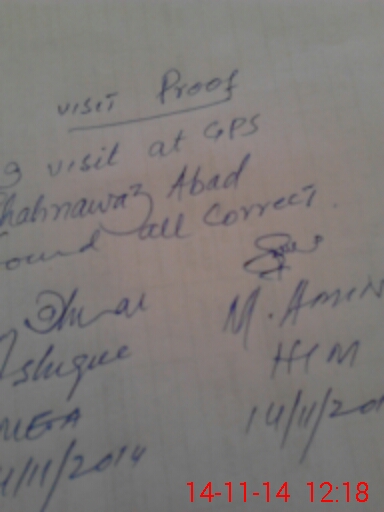 visit Proof
visit at GPS
hahnawaz Abad
ound all correct.
M. Amin
shique
HTM
META
14/11/201
4/11/2014
14-11-14 12:18